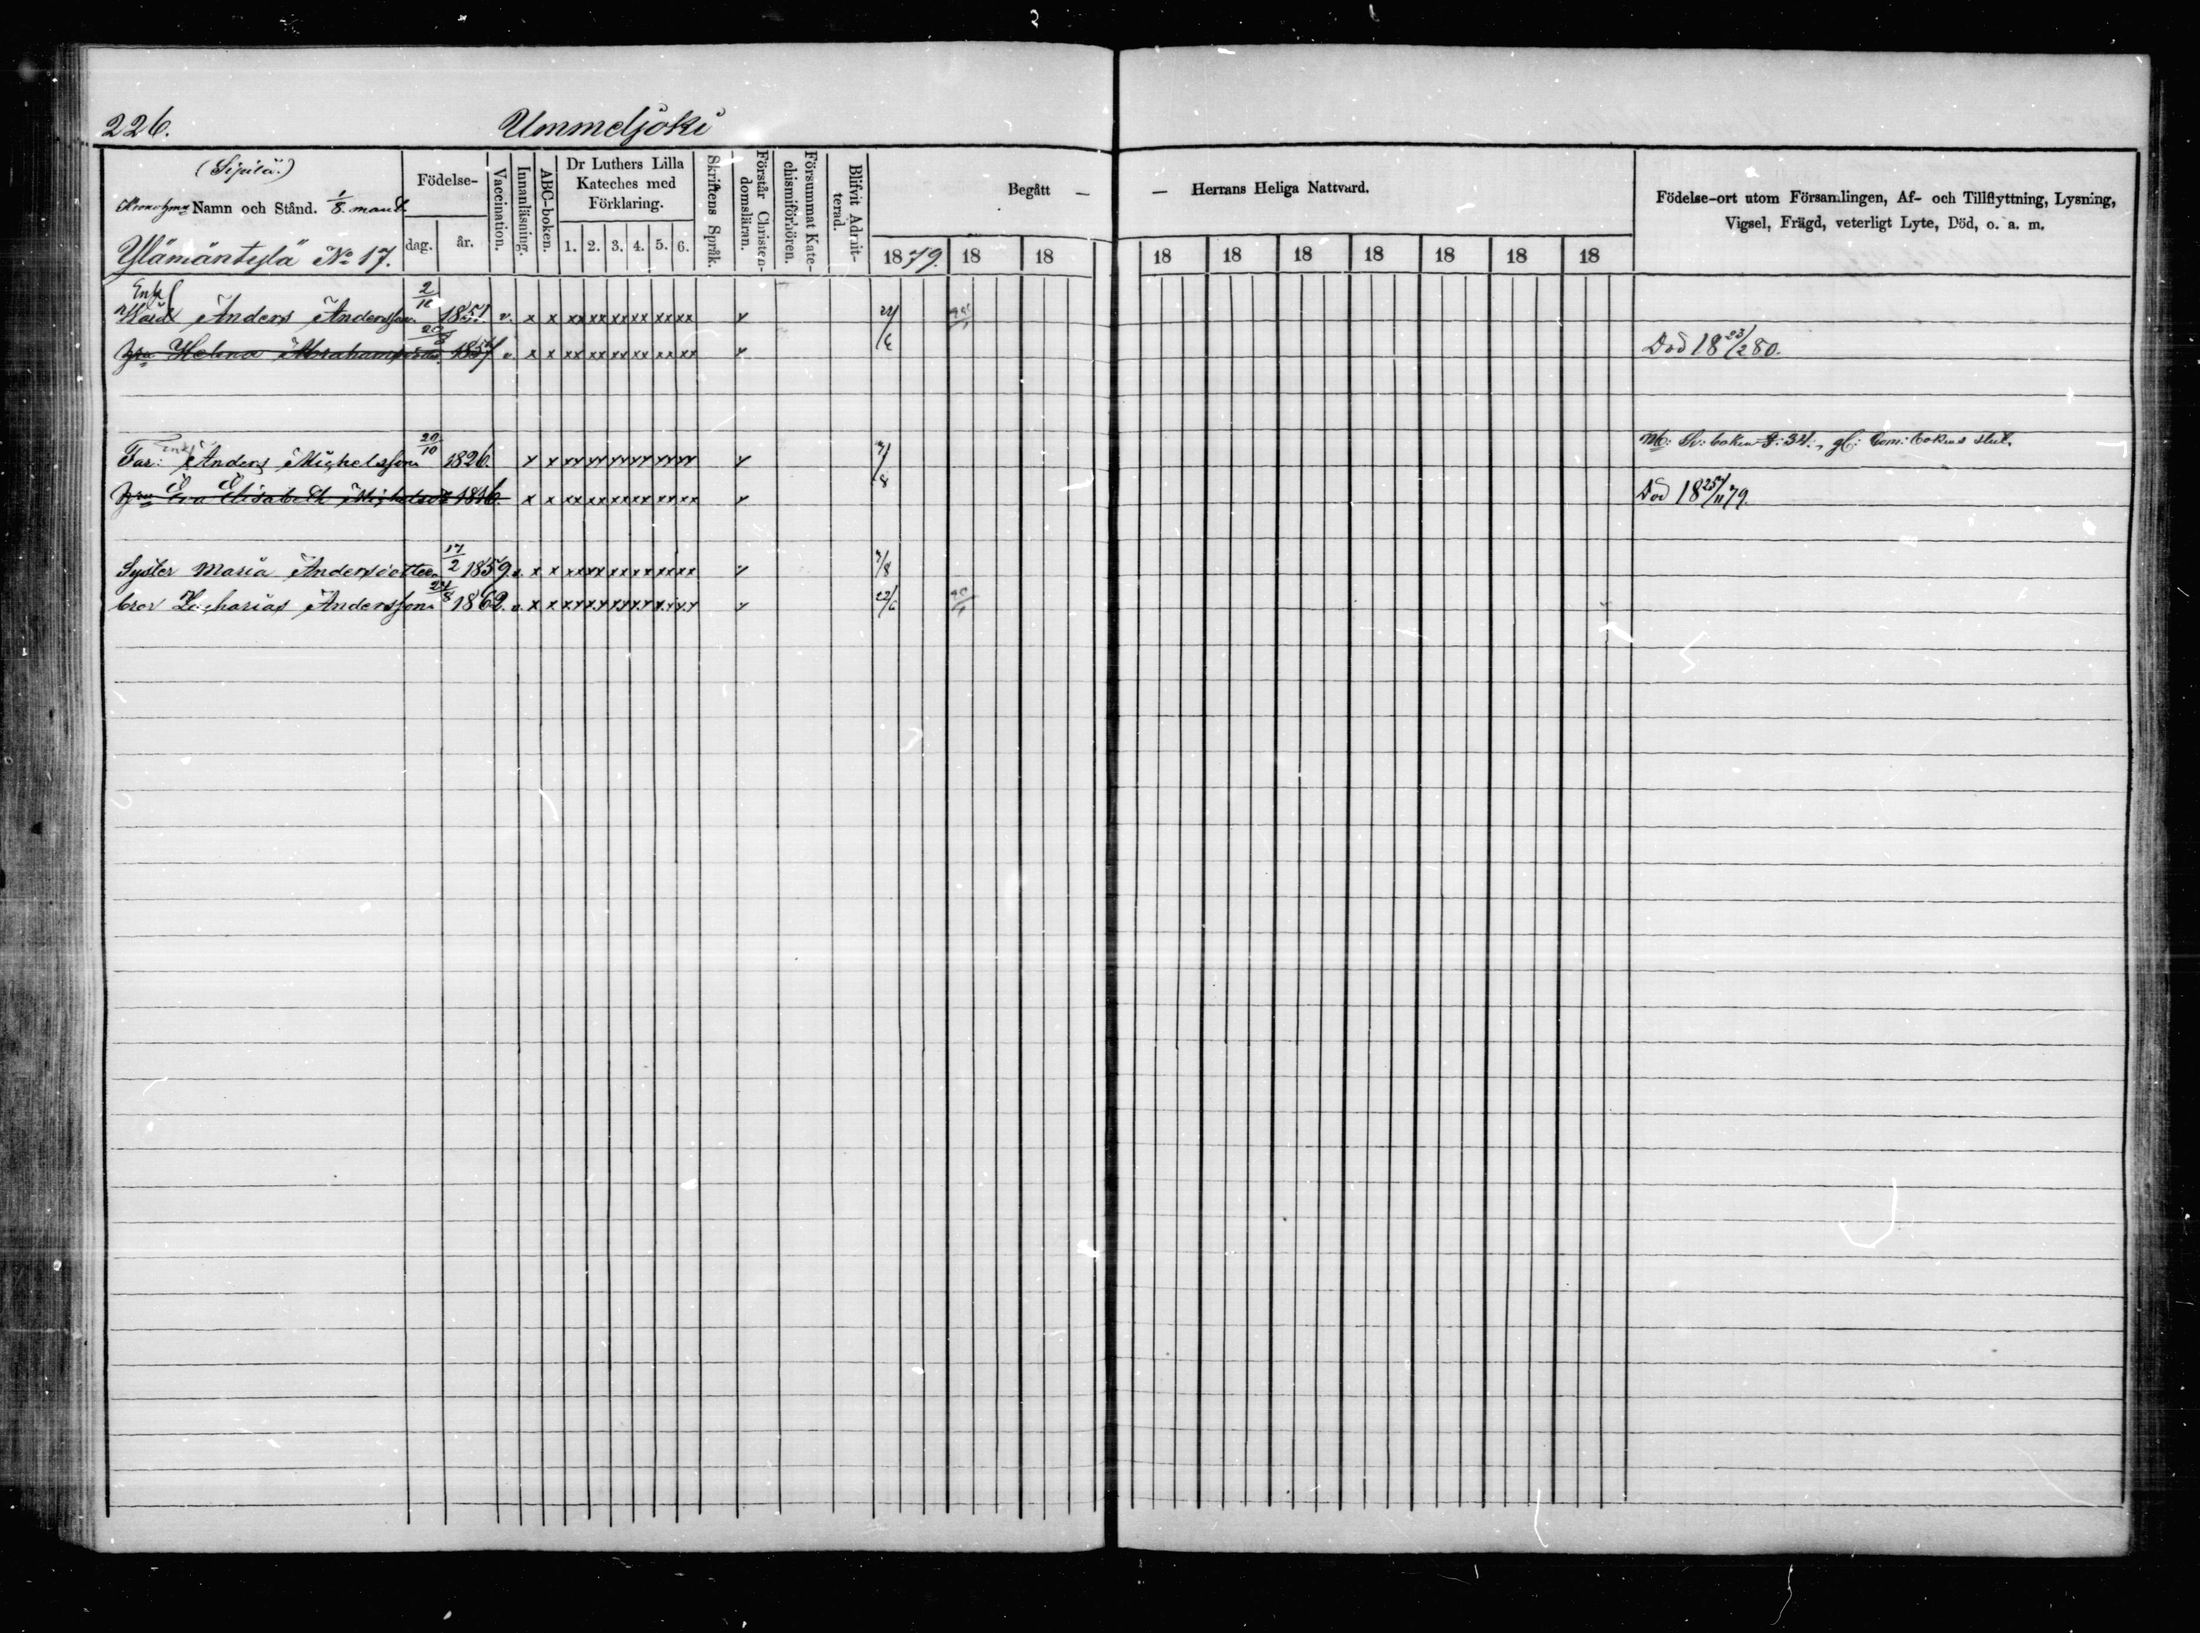 226. Ummeljoki
(Sipilä.)
Namn och Stånd. 1/8 mant.
Ylämäntylä No 17.
Födelse-
dag. år.
Vaccination.
Innanläsning.
ABC-boken.
Dr Luthers Lilla
Kateches med
Förklaring.
1. 2. 3. 4. 5. 6.
Skriftens Språk.
Förstår Christen-
domsläran.
Försummat Kate-
chismiförhören.
Blifvit Admit-
terad.
Begått — — Herrans Heliga Nattvard.
1879. 18 18 18 18 18 18 18 18 18
Födelse-ort utom Församlingen, Af- och Tillflyttning, Lysning,
Vigsel, Frägd, veterligt Lyte, Död, o. a. m.
Enkl
Anders Andersson 2/12 1851. v. x x xx xx xx xx xx xx v
Helena Abrahamsdotter 1857 v x x xx xx xx xx xx xx v Död 18 23/2 80.
Far: Enkl Anders Michelsson 20/10 1826. v x v 7/8
Eva Elisabeth Michelsdr 1816. x x xx xx xx xx xx xx v Död 18 25/11 79.
Syster Maria Andersdotter 17/2 1859. v. x x xx xx xx xx xx xx v 7/8
bror Zacharias Andersson 24/8 1862. v. x x v 22/6